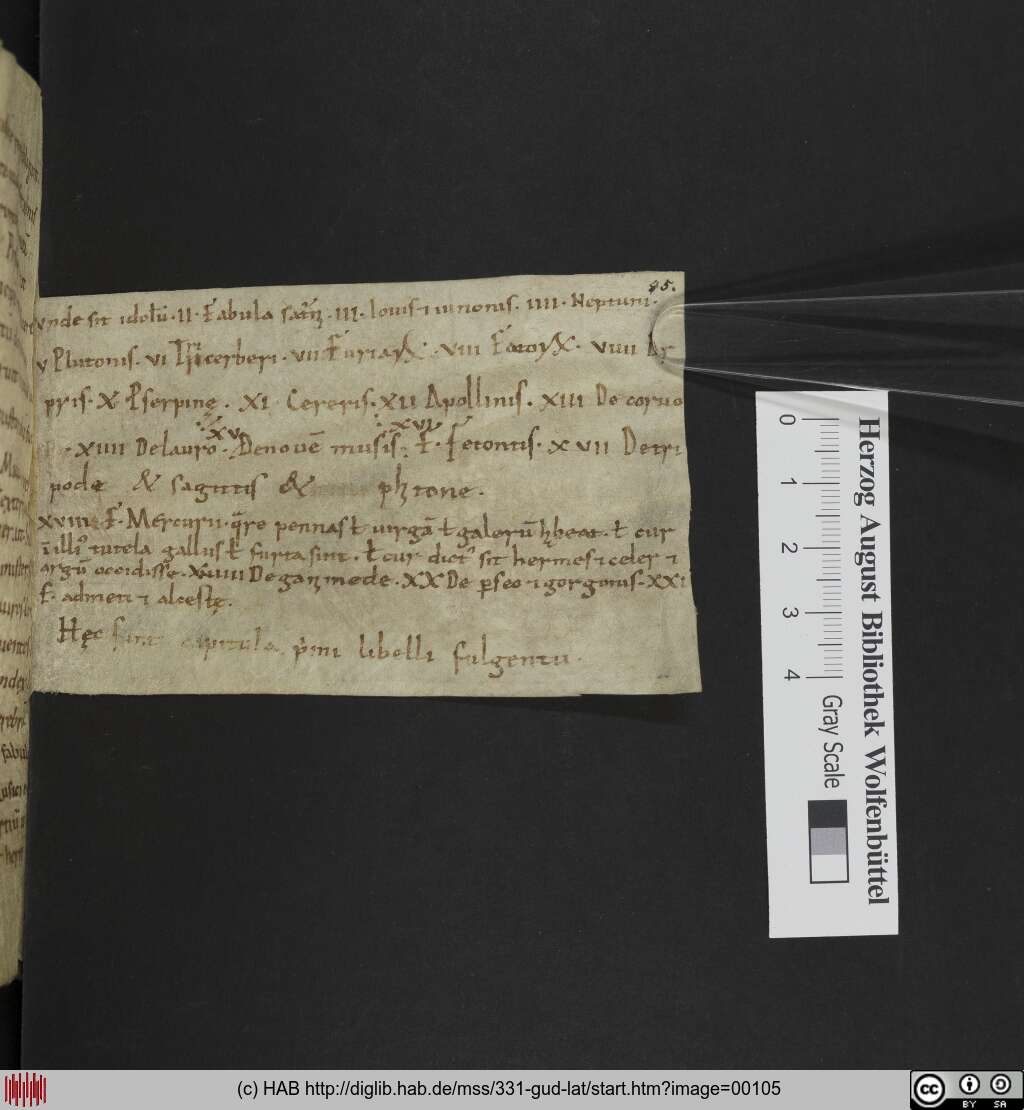 95.
vnde sit idolū · II · Fabula satr̄n · III · Iouis ⁊ iunonis · IIII · Neptuni ·
v Plutonis · VI Tricerberi · VII Furiaꝝ · VIII Fatoꝝ · VIIII
pris · X · Pserpinę · XI · Cereris · XII Apollinis · XIII De coruo
XV XVI
XIIII De lauro · De nouē musis · F · Fetontis · XVII De tri
pode & sagittis & phitone ·
XVIII F · Mercurii · q̄re pennas ł uirgā ł galerū habeat · ł cur
ī illi' tutela gallus ł furta sint · ł cur dict' sit hermes ⁊ celer ⁊
argū occidisse · XVIIII De ganimede · XX De ꝑseo ⁊ gorgonis · XXI
F · admeti ⁊ alcestę ·
Hęc sunt capitula p̄mi libelli fulgentii ·
0 1 2 3 4
Gray Scale
Herzog August Bibliothek Wolfenbüttel
(c) HAB http://diglib.hab.de/mss/331-gud-lat/start.htm?image=00105
cc BY SA